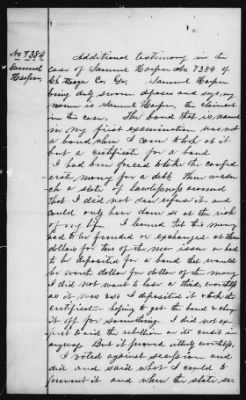 No 7384
Samuel
Harper
Additional testimony in the
case of Samuel Harper No 7384 of
Chattooga Co. Ga. Samuel Harper
being duly sworn deposes and says my
name is Samuel Harper, the claimant
in this case. The bond that is named
in my first examination was not
a bond when I come to look at it
but a certificate for a bond
I had been forced to take the confed
erate money for a debt. There was such
a state of lawlessness around
that I did not dare refuse it and
could only have done so at the risk
of my life. I learned that this money
had to be funded or exchanged at three
dollars for two of the new issue or had
to be deposited for a bond that would
be worth dollar for dollar of the money
I did not want to lose a third worthless
as it was and I deposited it took the
certificate hoping to get the bond &
it off for something I did not ex
pect to aid the rebellion or its cause in
anyway. But it proved utterly worthless.
I voted against secession and
did and said what I could to
prevent it and when the state se-